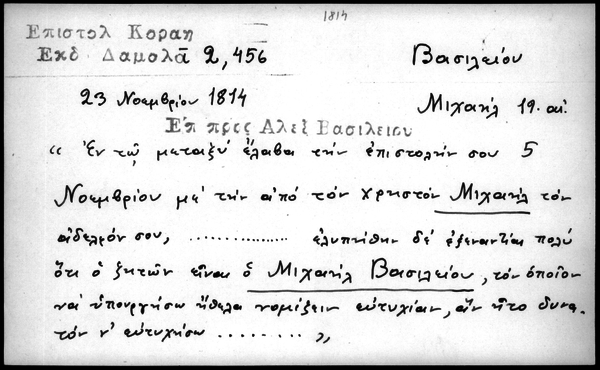 1814
Επιστολ Κοραη
Εκδ Δαμολᾶ 2,456
Βασιλείου
23 Νοεμβρίου 1814
Μιχαήλ 19. αἰ.
Ε'π προς Αλεξ Βασιλειου
“ Ἐν τῷ μεταξύ ἔλαβα τήν ἐπιστολήν σου 5
Νοεμβρίου μέ τήν ἀπό τόν χρηστόν Μιχαήλ τόν
ἀδελφόν σου, .............. ἐλυπήθην δέ ἐξεναντίας πολύ
ὅτι ὁ ζητῶν εἶναι ὁ Μιχαήλ Βασιλείου, τόν ὁποῖον
νά ὑπουργήσω ἤθελα νομίζειν εὐτυχίαν, ἄν ἦτο δυνα-
τόν ν' εὐτυχήσω ......... „